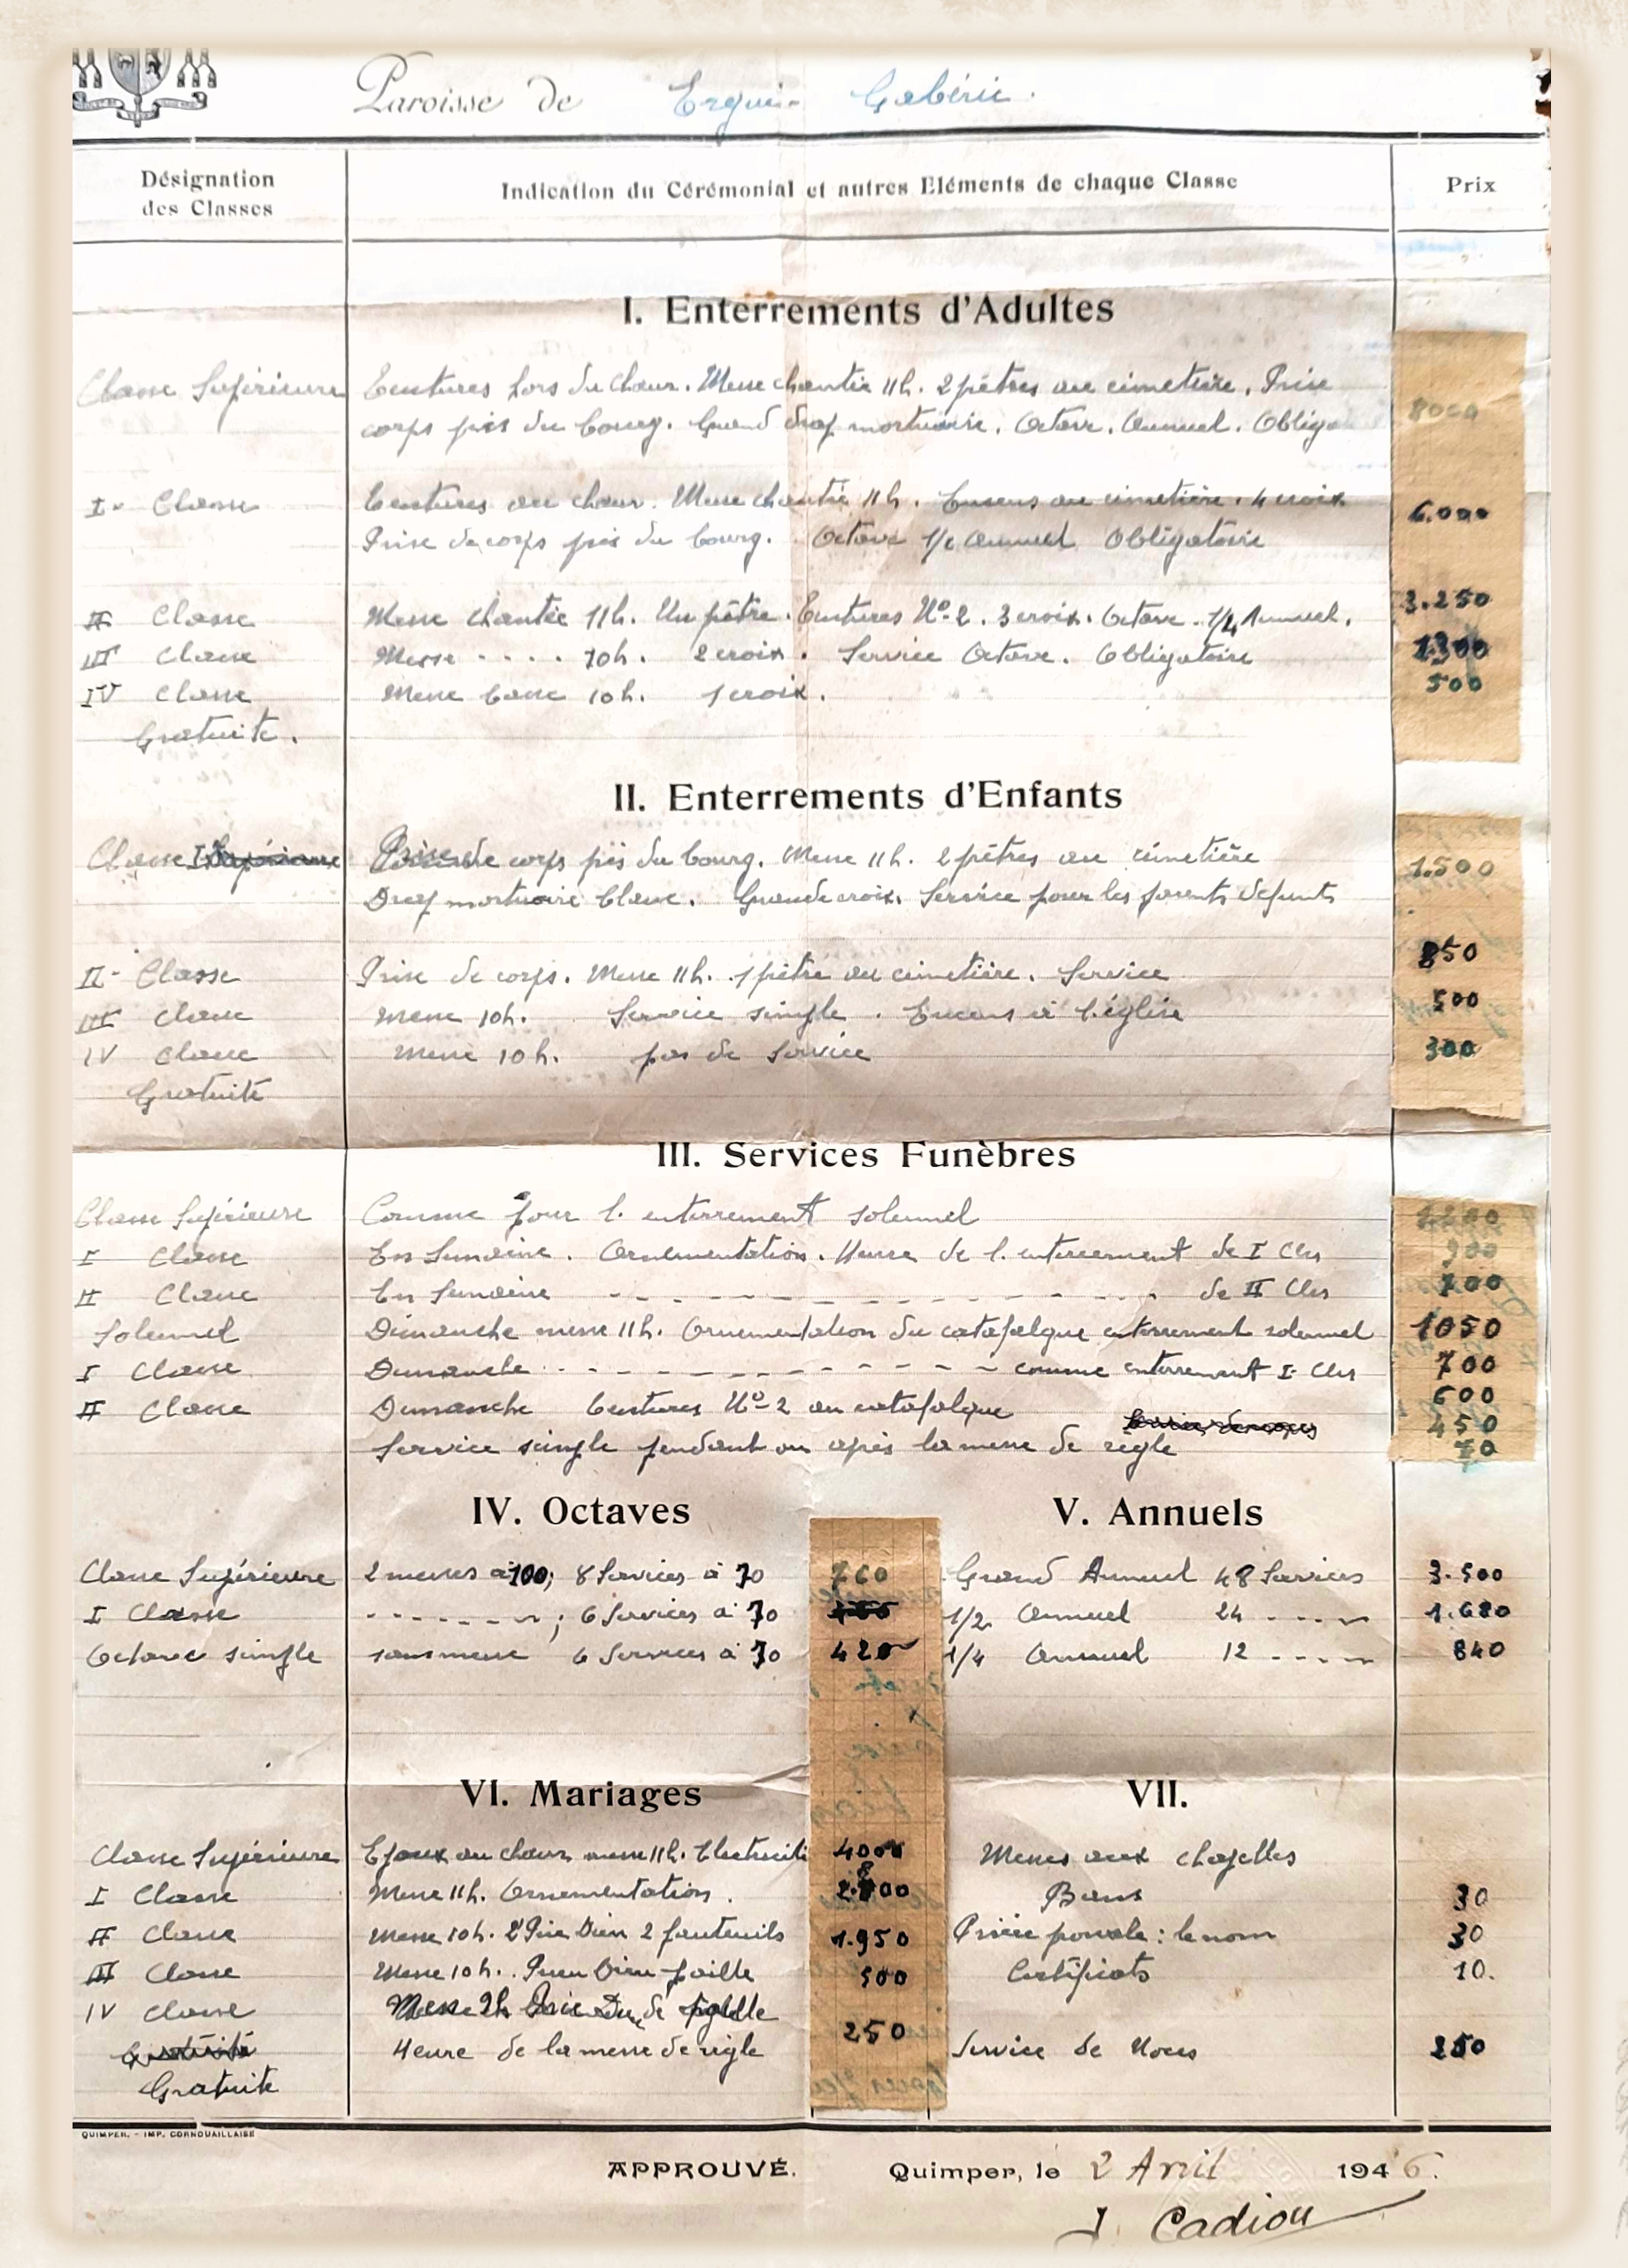 Paroisse de Ergué-Gabéric.
Désignation des Classes
Indication du Cérémonial et autres Eléments de chaque Classe
Prix
I. Enterrements d'Adultes
Classe Supérieure Tentures hors du Chœur. Messe chantée 11h. 2 prêtres au cimetière. Prise
corps près du bourg. Grand drap mortuaire. Octave. Annuel. Obliga 8000
I. Classe Tentures au chœur. Messe chantée 11h. Encens au cimetière. 4 croix 6.000
Prise de corps près du bourg. Octave 1/2 Annuel Obligatoire
II Classe Messe chantée 11h. Un prêtre. Tentures N°2. 3 croix. Octave. 1/4 Annuel. 3.250
III Classe Messe .... 10h. 2 croix. Service Octave. Obligatoire 1300
IV Classe Messe basse 10h. 1 croix. 500
Gratuite.
II. Enterrements d'Enfants
Classe I Prise de corps près du bourg. Messe 11h. 2 prêtres au cimetière 1.500
Drap mortuaire blanc. Grande croix. Service pour les parents défunts
II- Classe Prise de corps. Messe 11h. 1 prêtre au cimetière. Service 850
III Classe Messe 10h. Service simple. Encens à l'église 500
IV Classe Messe 10h. pas de Service 300
Gratuité
III. Services Funèbres
Classe Supérieure Comme pour l'enterrement solennel
I Classe En Semaine. Ornementation. Heure de l'enterrement de I Cles 900
II Classe En Semaine - - - - - - de II Cles 700
Solennel Dimanche messe 11h. Ornementation du catafalque enterrement solennel 1050
I Classe Dimanche - - - - - - comme enterrement I. Cles 700
II Classe Dimanche Tentures N°-2 au catafalque 600
450
Service simple pendant ou après la messe de règle 70
IV. Octaves
V. Annuels
Classe Supérieure 2 messes à 100; 8 Services à 70 760 Grand Annuel 48 Services 3.500
I Classe - - - - - -; 6 Services à 70 1/2 Annuel 24 - - - - 1.680
Octave simple sans messe 6 Services à 70 420 1/4 Annuel 12 - - - - 840
VI. Mariages
VII.
Classe Supérieure Epoux au chœur messe 11h. Electricité 4000 Messes aux chapelles
I Classe Messe 11h. Ornementation. 2.800 Bans 30
II Classe Messe 10h. 2 Prie Dieu 2 fauteuils 1.950 Prière pronale: le nom 30
III Classe Messe 10h. Prieu Dieu paille 500 Certificats 10.
IV Classe Messe
Heure de la messe de règle 250 Service de Noces 250
Gratuite
QUIMPER. - IMP. CORNOUAILLAISE
APPROUVÉ.
Quimper, le 2 Avril 1946.
J. Cadiou